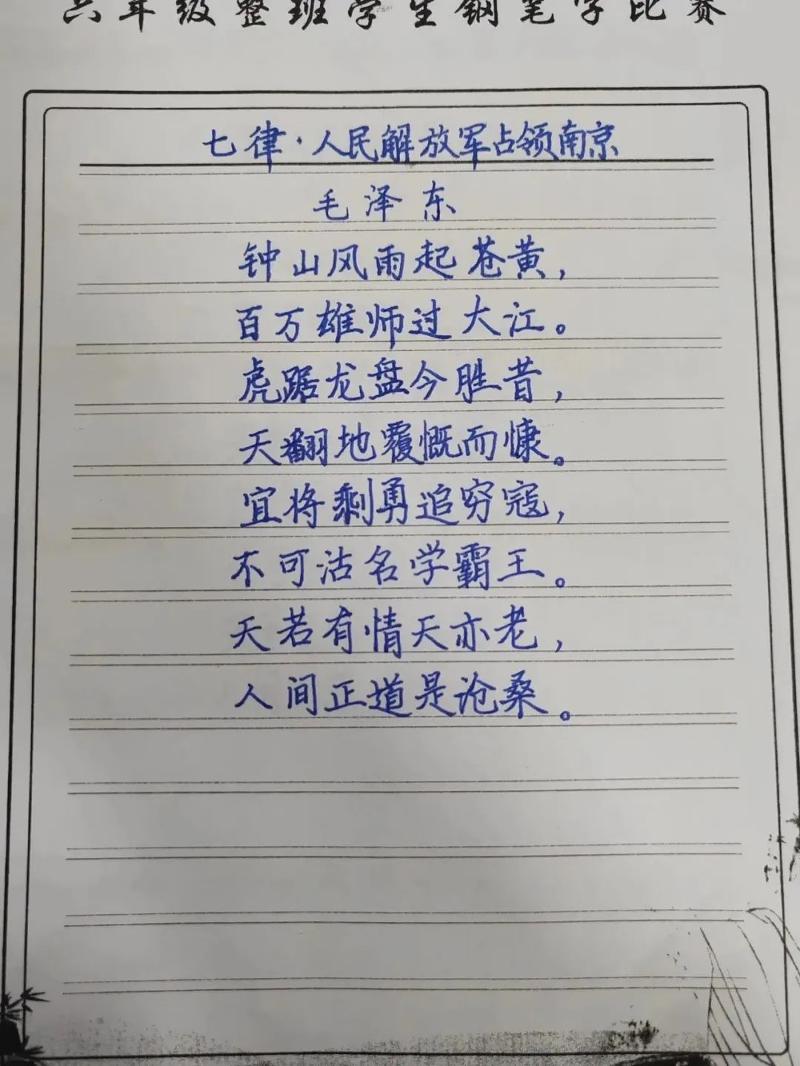 六年级整班学生钢笔字比赛
七律·人民解放军占领南京
毛泽东
钟山风雨起苍黄，
百万雄师过大江。
虎踞龙盘今胜昔，
天翻地覆慨而慷。
宜将剩勇追穷寇，
不可沽名学霸王。
天若有情天亦老，
人间正道是沧桑。